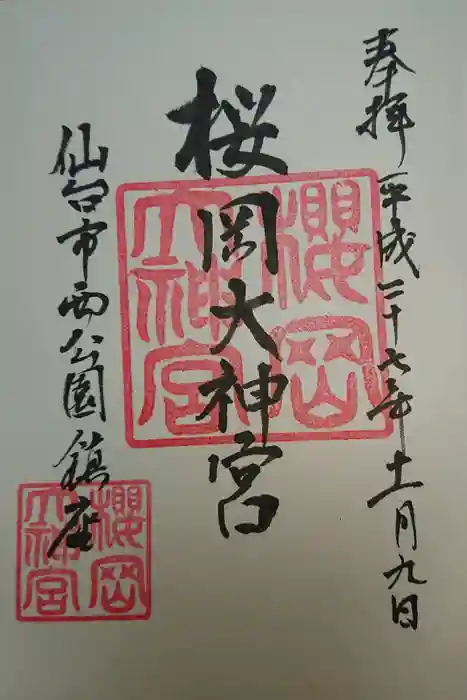 奉拝 平成二十七年十一月九日
桜岡大神宮
仙台市西公園鎮座
櫻岡
大神宮
櫻岡
大神宮